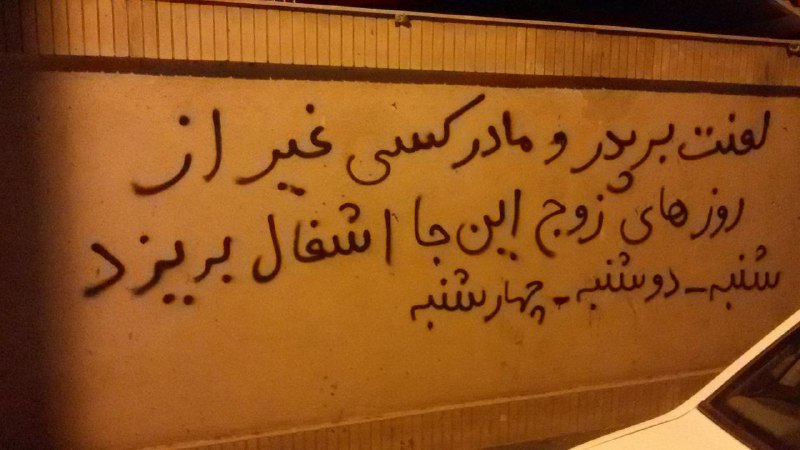 لعنت بر پدر و مادر کسی غیر از
روزهای زوج این جا اشغال بریزد
شنبه - دوشنبه - چهارشنبه